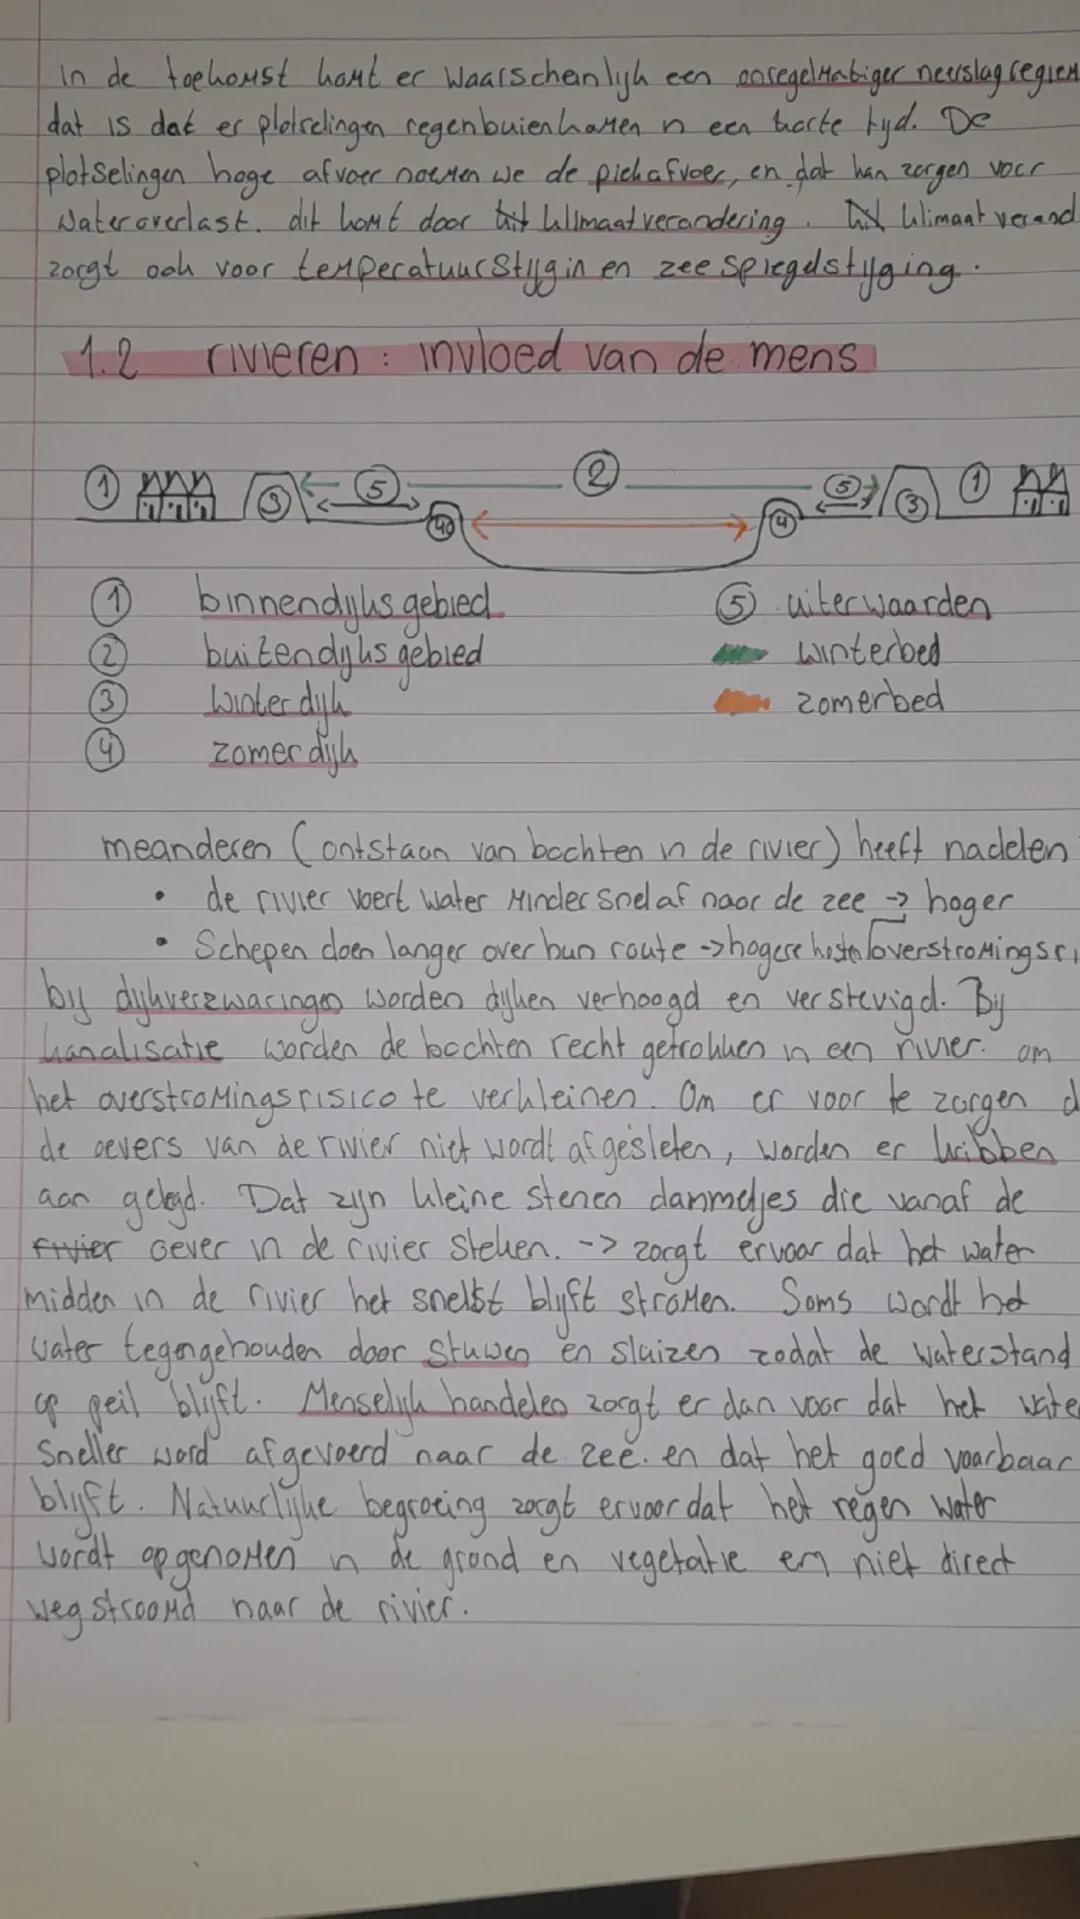 in de toekomst komt er waarschenlijk een onregelmatiger neerslagregiem
dat is dat er plotselingen regenbuien komen in een korte tijd. De
plotselingen hoge afvoer noemen we de piekafvoer, en dat kan zorgen voor
wateroverlast. dit komt door klimaatverandering. klimaat verand
zorgt ook voor temperatuurstijgin en zeespiegelstijging.
1.2 rivieren: invloed van de mens
1 3 5 2 5 3 1
4 4
1 binnendijks gebied 5 uiterwaarden
2 buitendijks gebied winterbed
3 winterdijk zomerbed
4 zomerdijk
meanderen (ontstaan van bochten in de rivier) heeft nadelen
• de rivier voert water minder snel af naar de zee -> hoger
• Schepen doen langer over hun route -> hogere kosten overstromingsri
bij dijkverzwaringen worden dijken verhoogd en verstevigd. Bij
kanalisatie worden de bochten recht getrokken in een rivier. om
het overstromingsrisico te verkleinen. Om er voor te zorgen d
de oevers van de rivier niet wordt afgesleten, worden er kribben
aan gelegd. Dat zijn kleine stenen dammetjes die vanaf de
rivier oever in de rivier steken. -> zorgt ervoor dat het water
midden in de rivier het snelst blijft stromen. Soms wordt het
water tegengehouden door stuwen en sluizen zodat de waterstand
op peil blijft. Menselijk handelen zorgt er dan voor dat het wate
sneller word afgevoerd naar de zee. en dat het goed vaarbaar
blijft. Natuurlijke begroeing zorgt ervoor dat het regen water
wordt opgenomen in de grond en vegetatie en niet direct
weg stroomd naar de rivier.